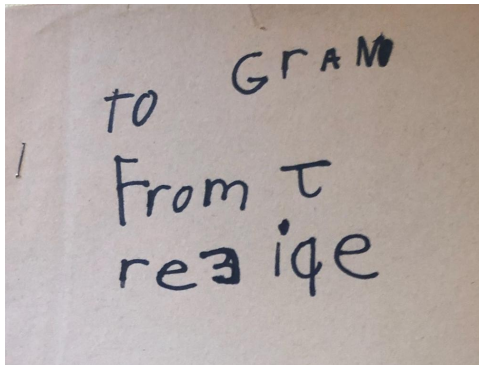 TO GrAN
From T
reɜ iqe